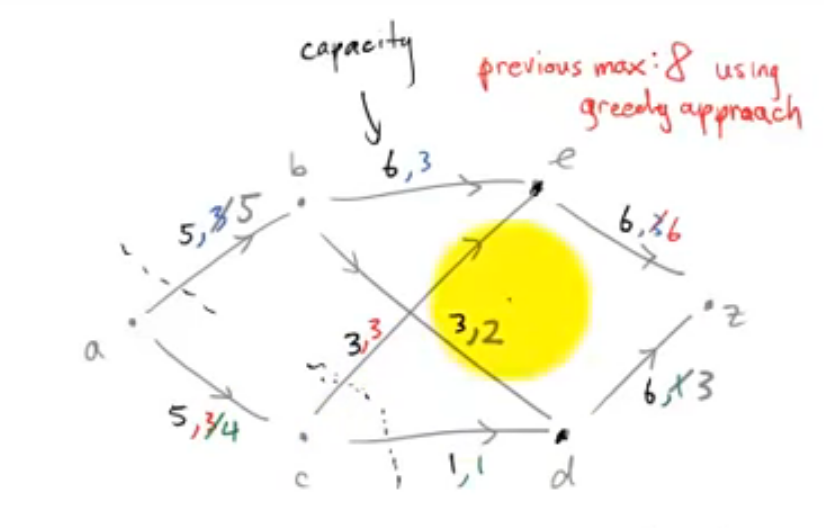 capacity
previous max: 8 using
greedy approach
b
6,3
e
5,3 5
6,3 6
a
z
3,3
3,2
6,1 3
5,3 4
c
1,1
d